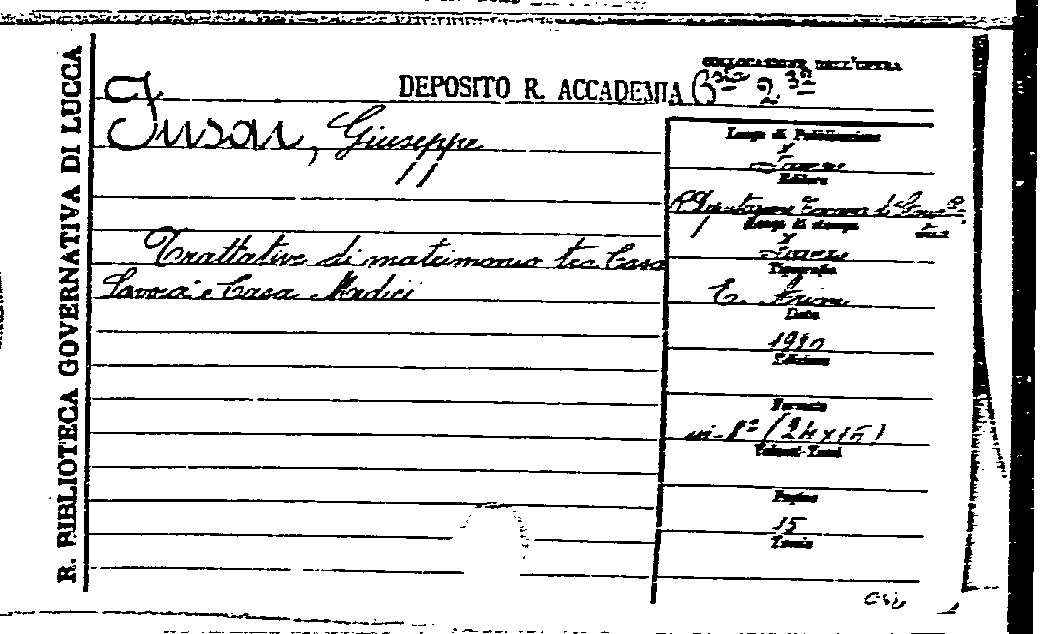 R. BIBLIOTECA GOVERNATIVA DI LUCCA
DEPOSITO R. ACCADEMIA
COLLOCAZIONE DELL'OPERA
Fusai, Giuseppe
Trattative di matrimonio tra Casa
Savoia e Casa Medici
Luogo di Pubblicazione
Firenze
Editore
R. Deputazione Toscana di
Luogo di stampa
Firenze
Tipografia
Data
1910
Edizione
Formato
in-8º (24x15)
Volumi-Tomi
Pagine
15